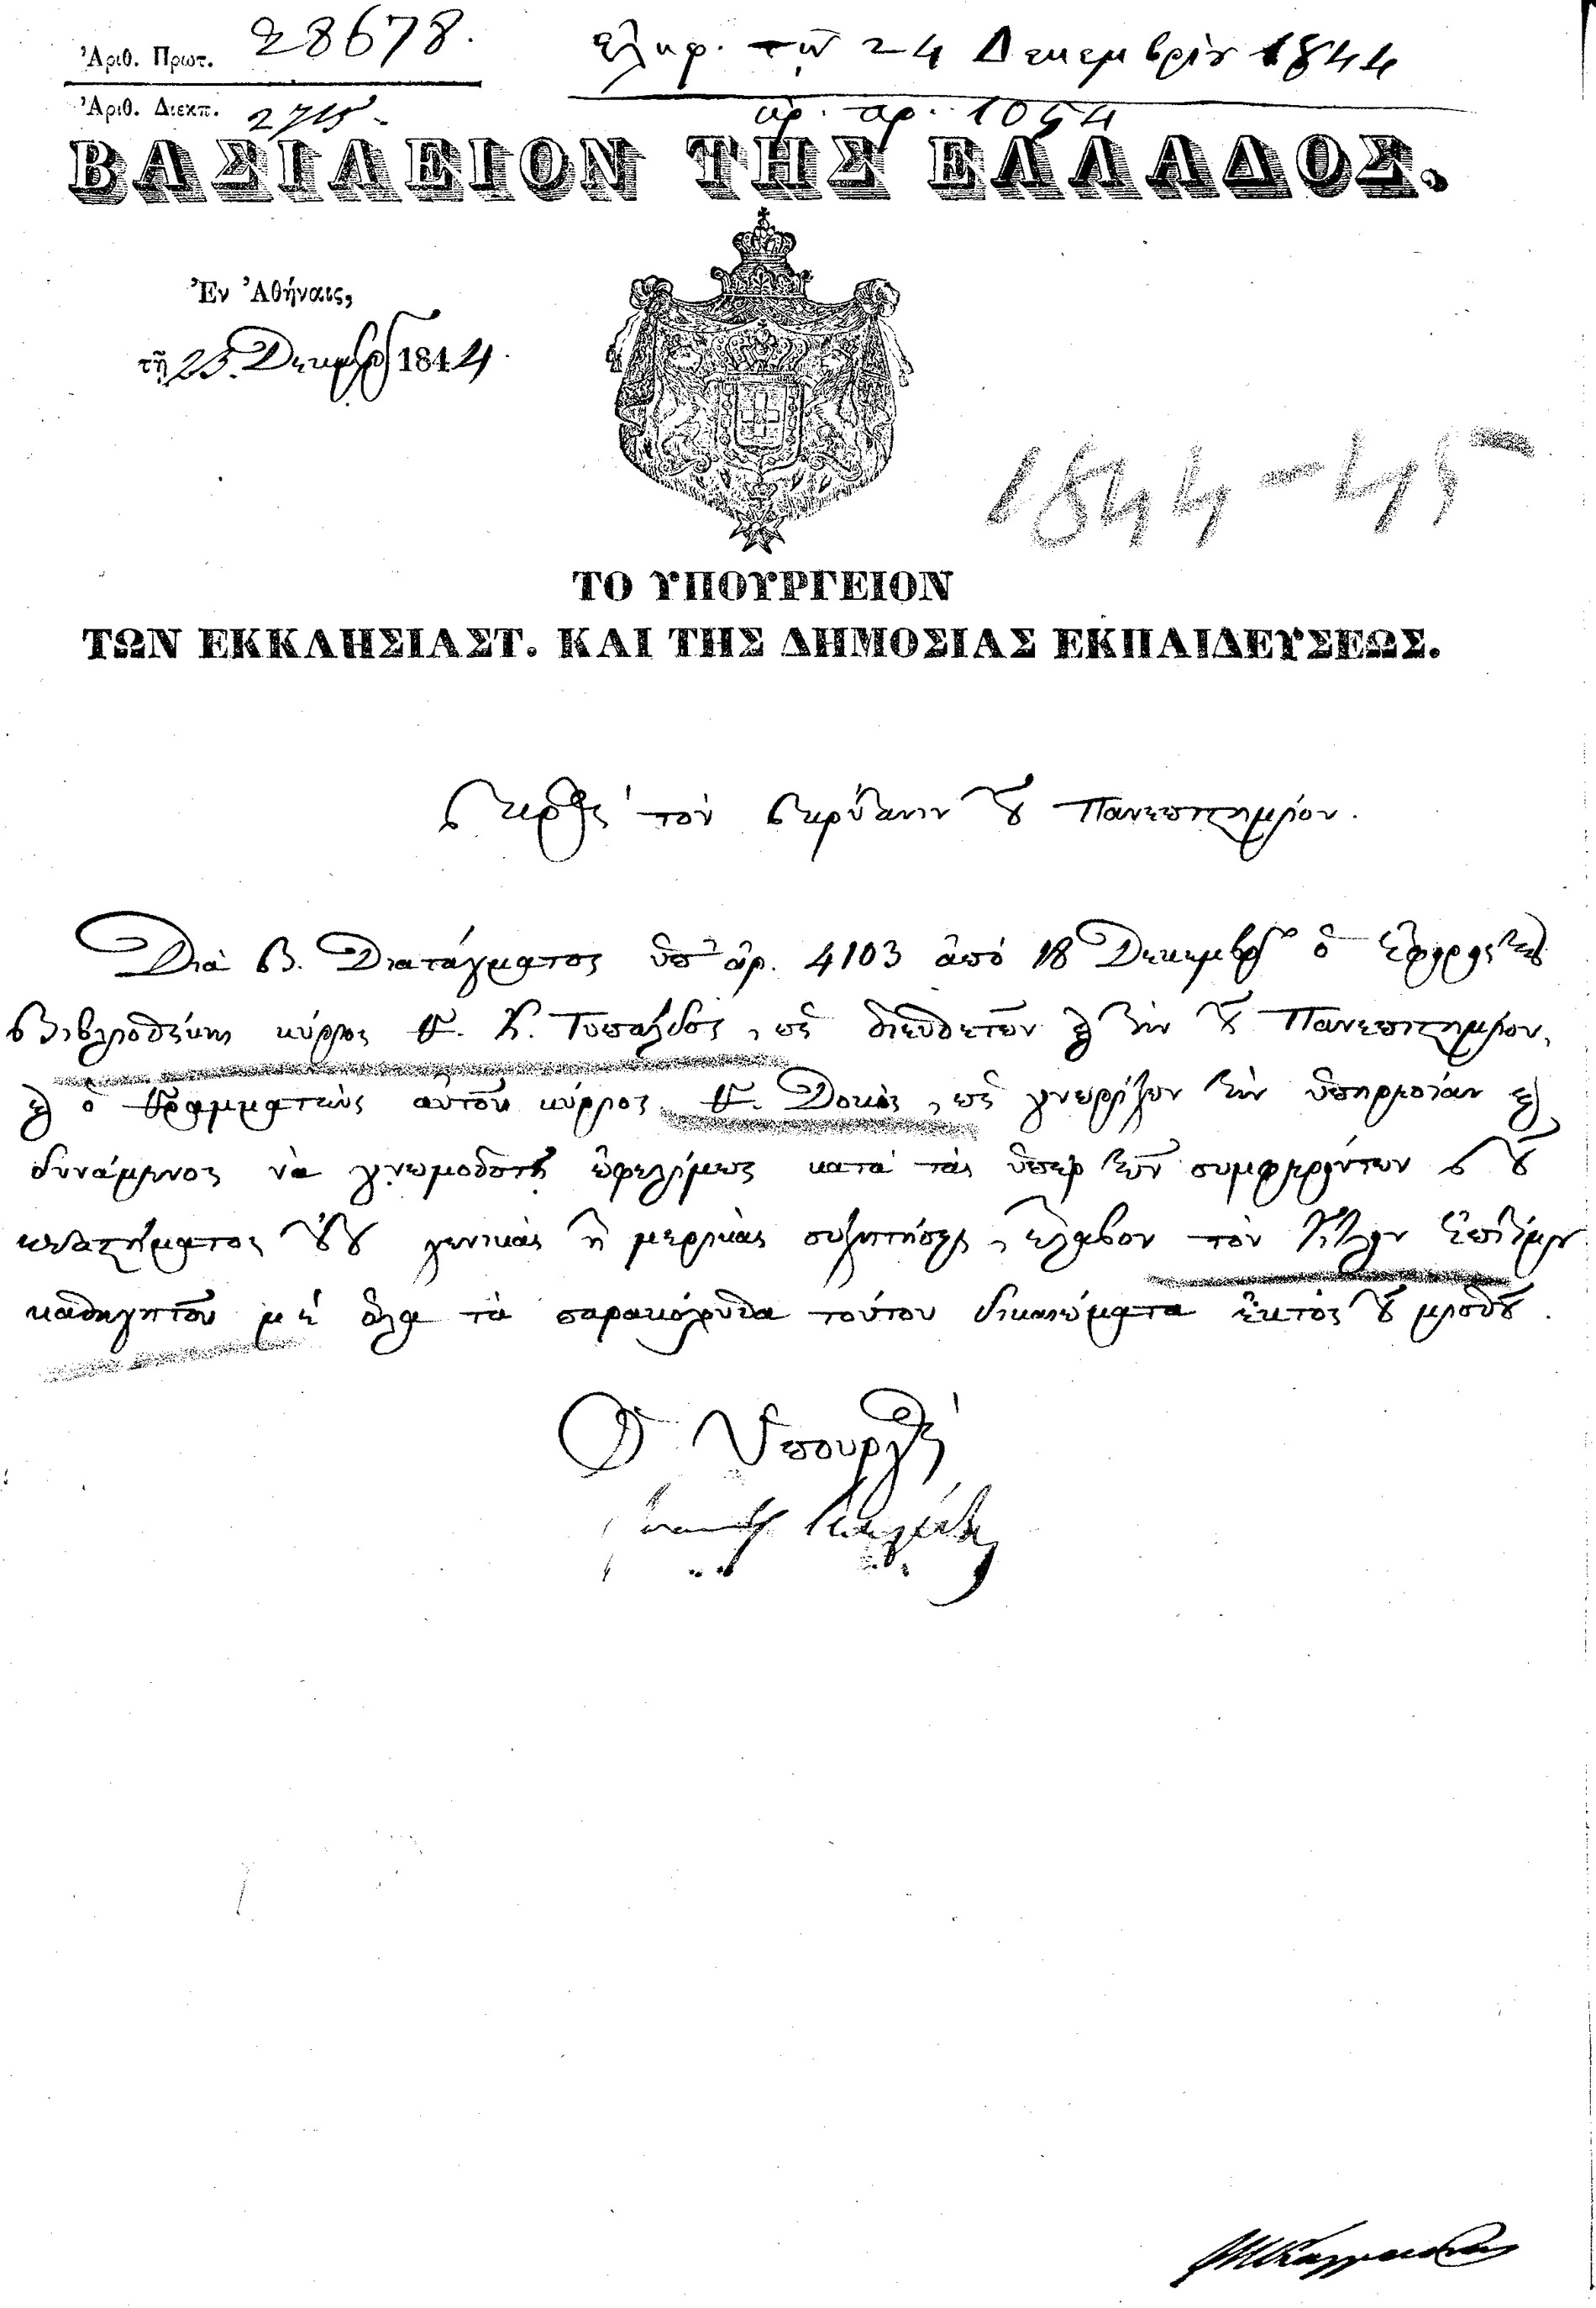 Ἀριθ. Πρωτ. 28678.
ἐλήφ. τῇ 24 Δεκεμβρίου 1844
Ἀριθ. Διεκπ. 2715
ἀρ. πρ. 1054
ΒΑΣΙΛΕΙΟΝ ΤΗΣ ΕΛΛΑΔΟΣ.
Ἐν Ἀθήναις,
τῇ 23 Δεκεμβρ 1844.
1844-45
ΤΟ ΥΠΟΥΡΓΕΙΟΝ
ΤΩΝ ΕΚΚΛΗΣΙΑΣΤ. ΚΑΙ ΤΗΣ ΔΗΜΟΣΙΑΣ ΕΚΠΑΙΔΕΥΣΕΩΣ.
Πρὸς τὸν Πρύτανιν τοῦ Πανεπιστημίου.
Διὰ Β. Διατάγματος ὑπ' ἀρ. 4103 ἀπὸ 18 Δεκεμβρίου ὁ Ἔφορος τῆς
Βιβλιοθήκης κύριος Γ. Κ. Τυπάλδος, ὡς διευθετῶν καὶ τὴν τοῦ Πανεπιστημίου,
καὶ ὁ Γραμματεὺς αὐτοῦ κύριος Γ. Δοκὸς, ὡς γνωρίζων τὴν ὑπηρεσίαν καὶ
δυνάμενος νὰ γνωμοδοτῇ ὠφελίμως κατὰ τὰς ὑπὲρ τῶν συμφερόντων τοῦ
καταστήματος τούτου γενικὰς ἢ μερικὰς συζητήσεις, ἔλαβον τὸν τίτλον ἐπιτίμου
καθηγητοῦ μὲ ὅλα τὰ παρακόλουθα τούτου δικαιώματα ἐκτὸς τοῦ μισθοῦ.
Ὁ Ὑπουργὸς